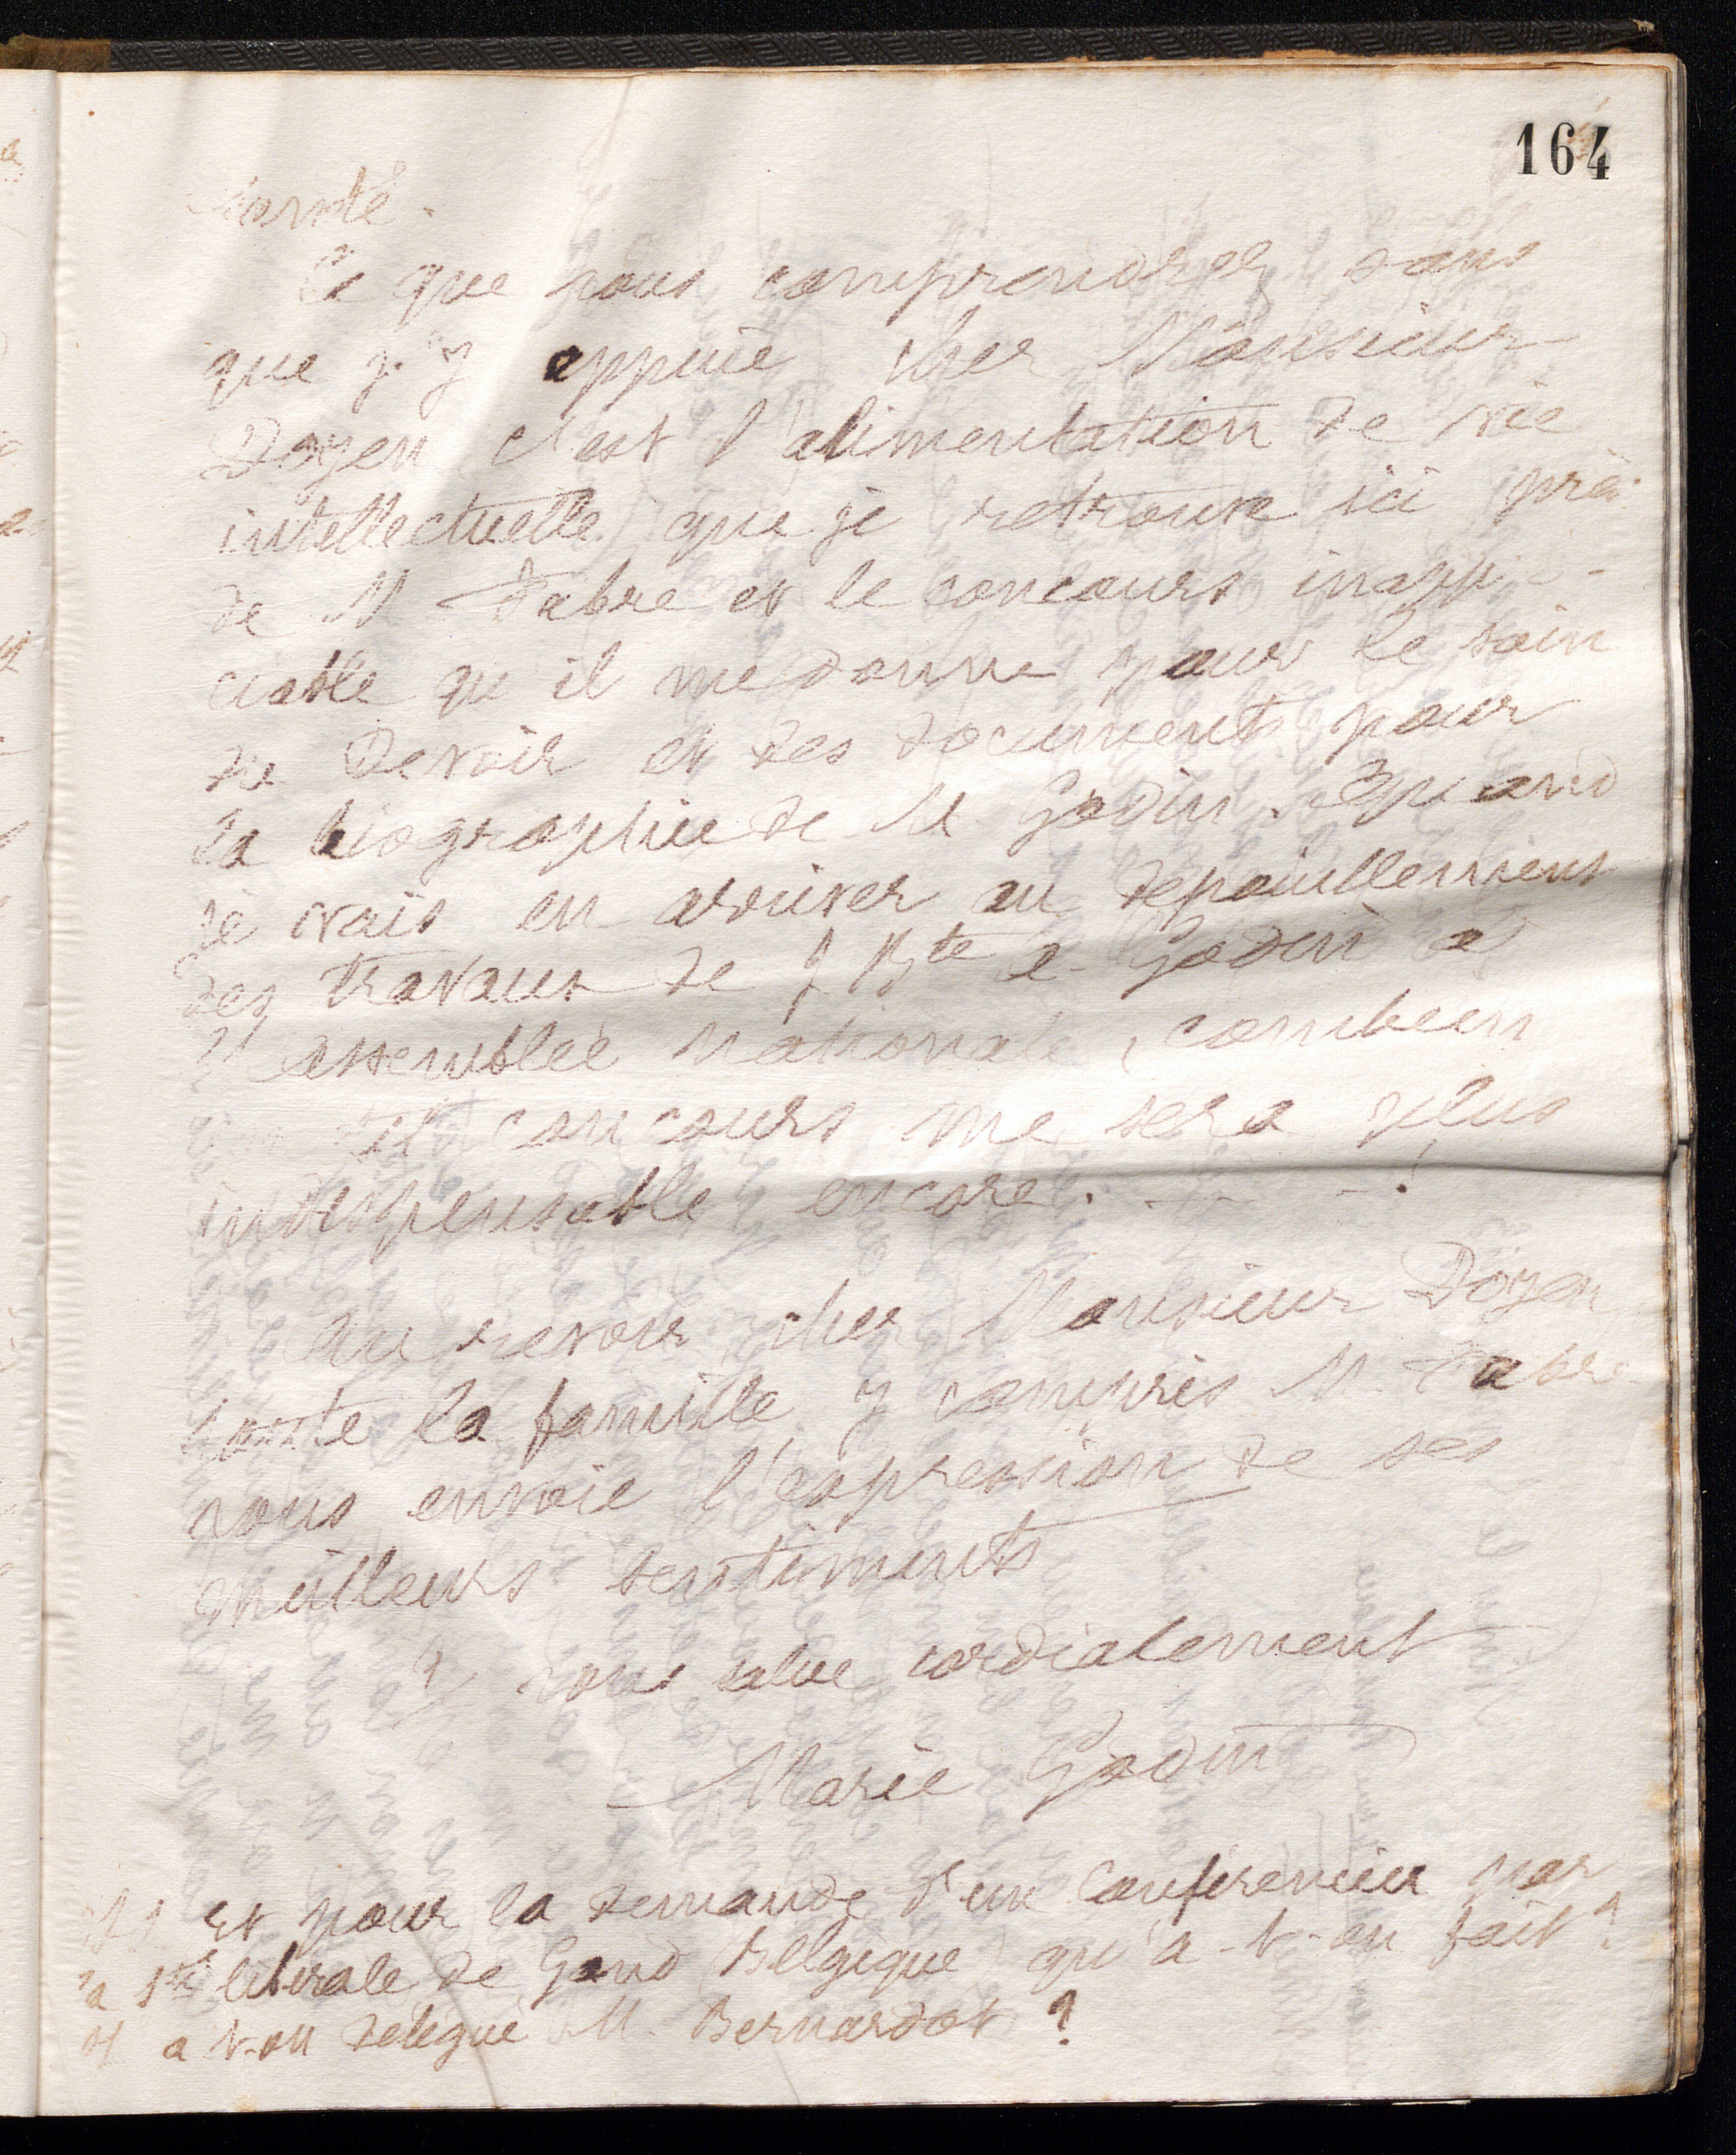 164
santé.
Ce que vous comprendrez sans
que j'y appuie cher Monsieur
Doyen c'est l'alimentation de vie
intellectuelle que je retrouve ici près
de M Fabre et le concours inappré-
ciable qu'il me donne pour le soin
du Devoir et des documents pour
la biographie de M Godin. Quand
je vais en arriver au dépouillement
des travaux de J Bte A. Godin à
l'assemblée nationale, combien
concours me sera plus
indispensable encore. - - - !
Au revoir cher Monsieur Doyen
toute la famille y compris M. Fabre
vous envoie l'expression de ses
meilleurs sentiments
Je vous salue cordialement
Marie Godin
PS Et pour la demande d'un Conférencier par
la Sté libérale de Gand Belgique qu'a-t-on fait ?
Y a t-on délégué M. Bernardot ?